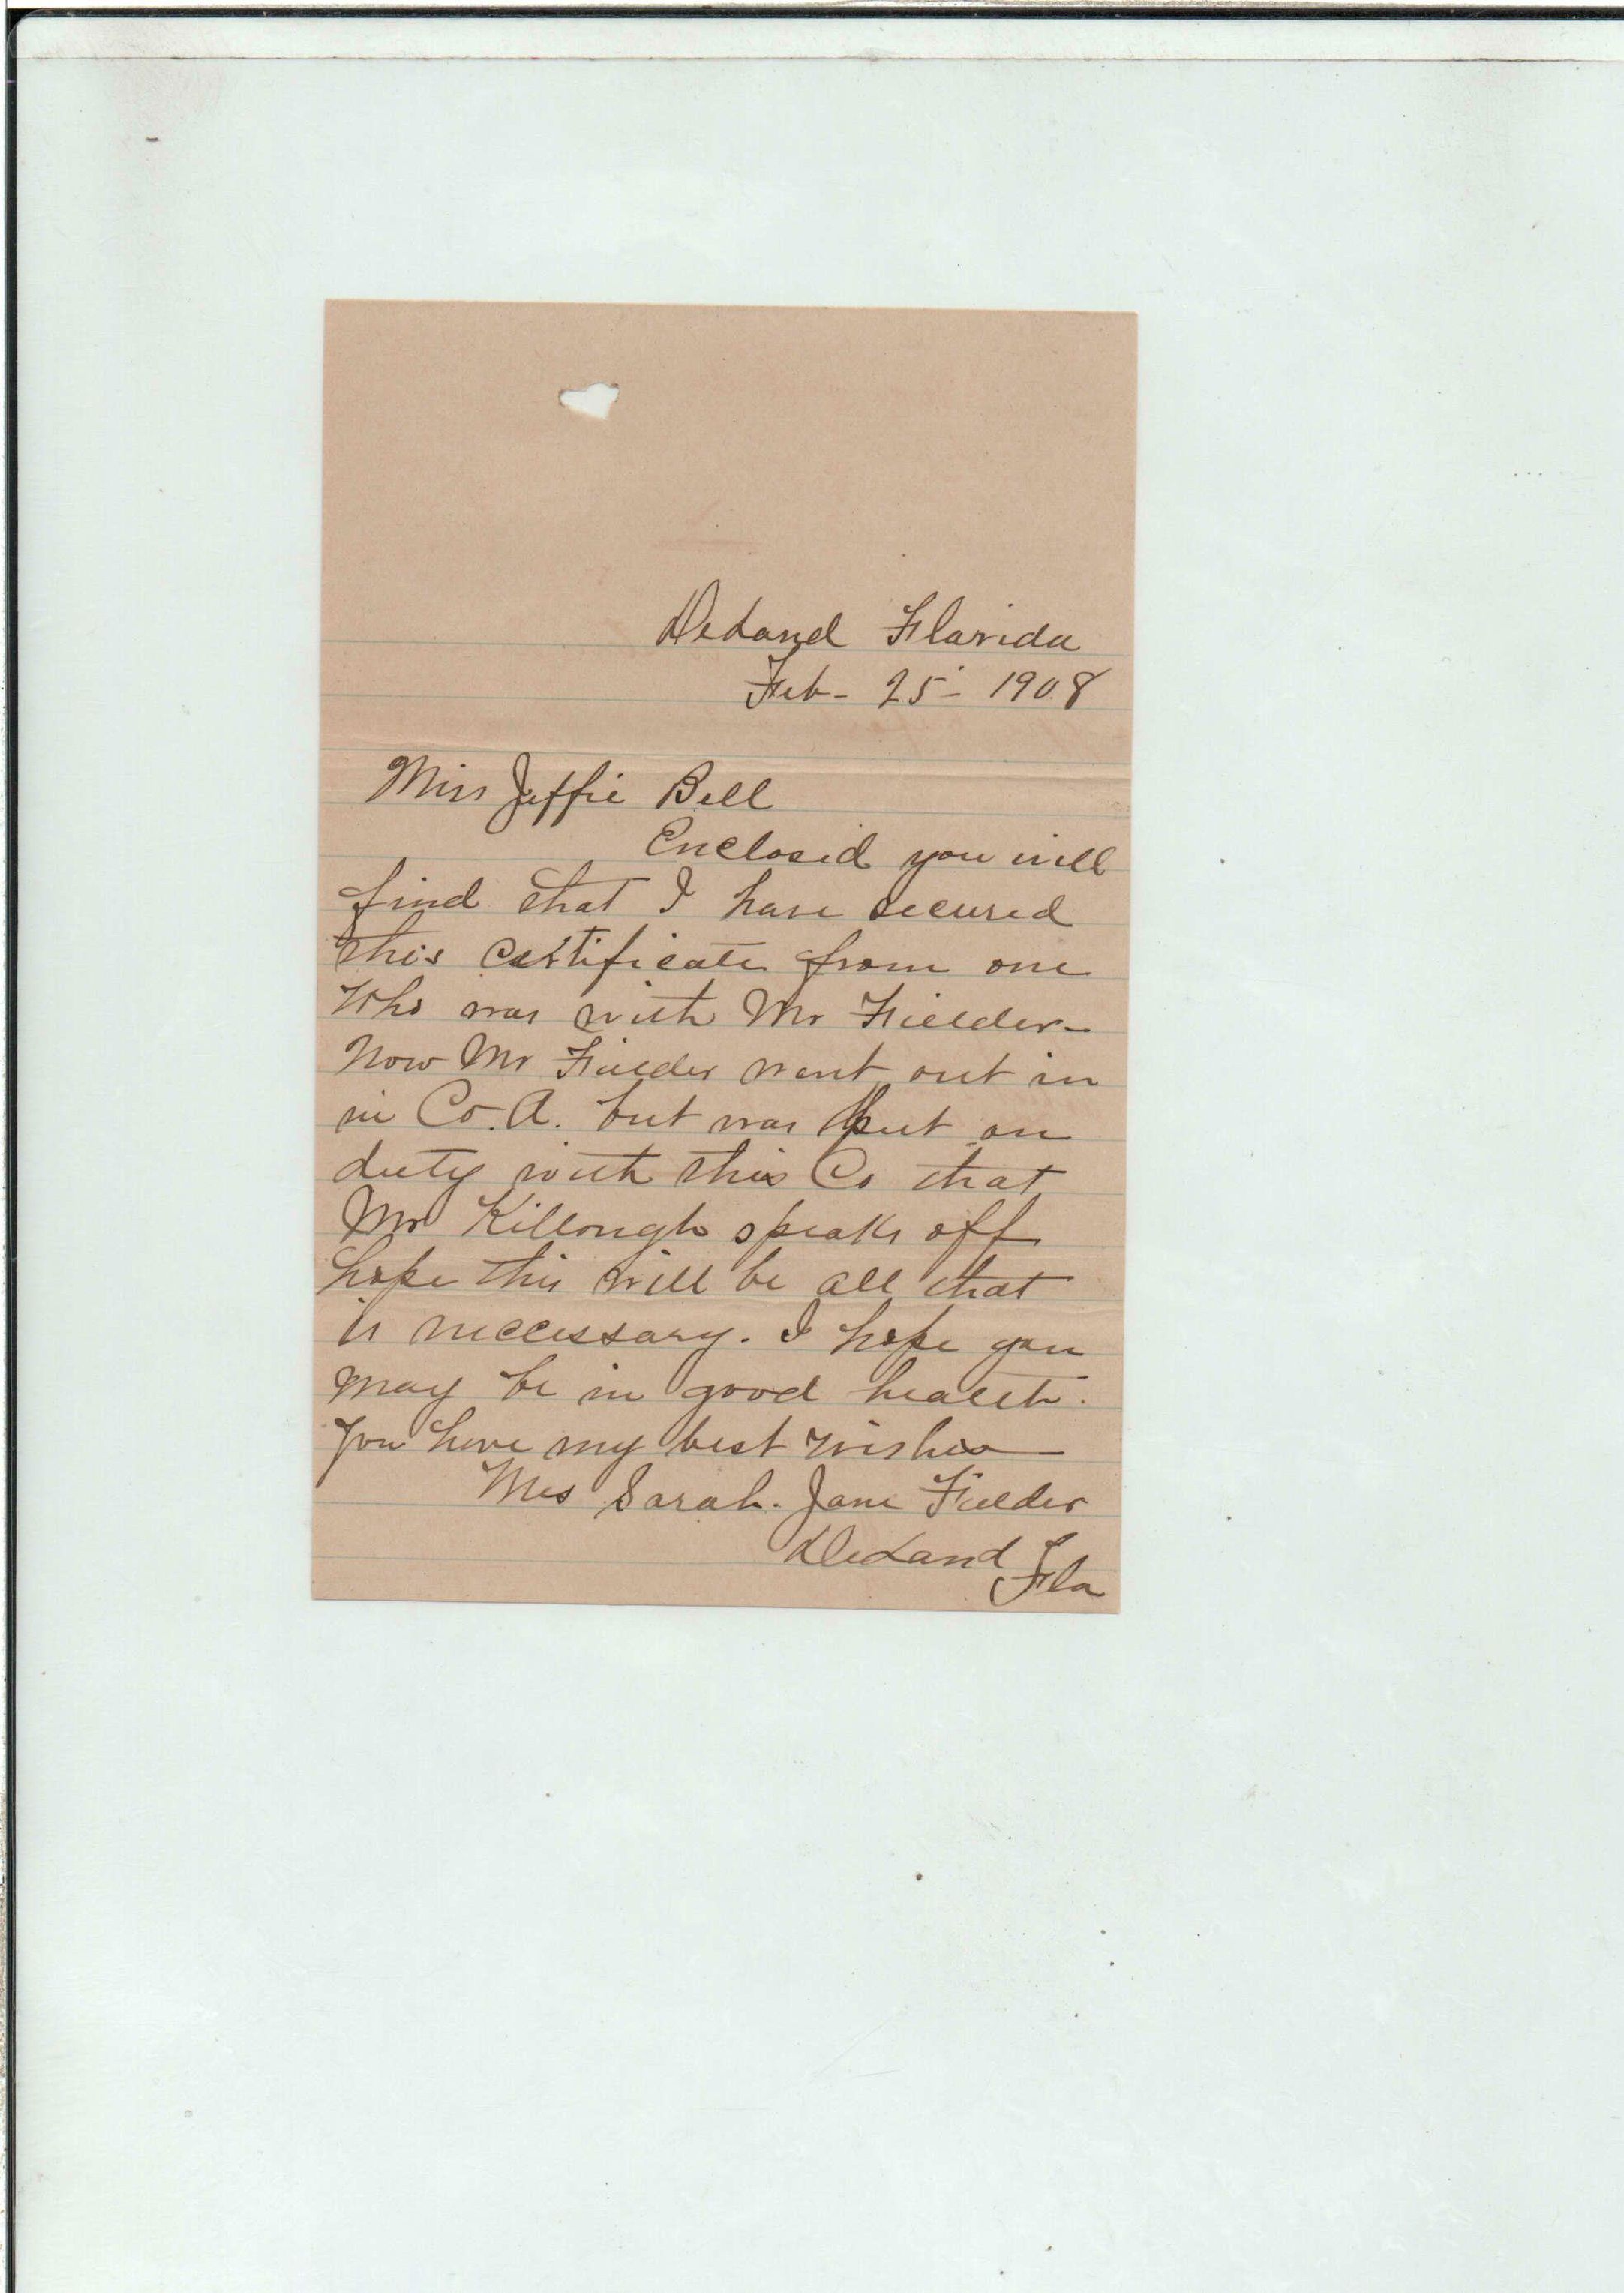 DeLand Florida
Feb - 25 - 1908
Miss Jeffie Bell
Enclosed you will
find that I have secured
this certificate from one
who was with Mr Fielder -
Now Mr Fielder went out in
in Co. A. but was put on
duty with this Co that
Mr Killough speaks off
hope this will be all that
is neccessary. I hope you
may be in good health.
You have my best wishes
Mrs Sarah. Jane Fielder
DeLand
Fla